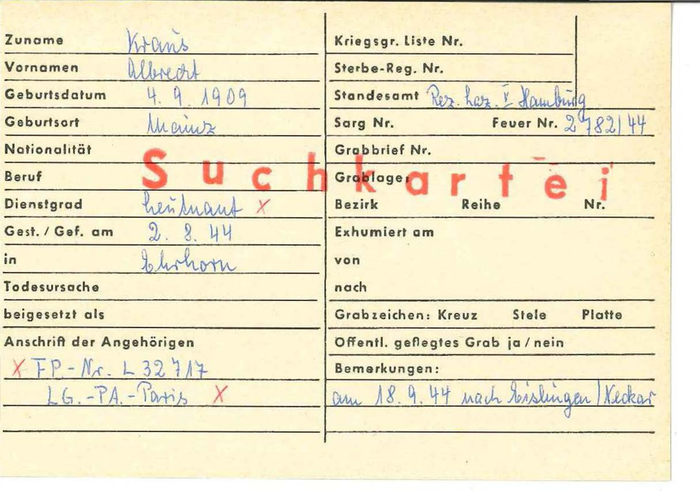 Zuname Kraus
Vornamen Albrecht
Geburtsdatum 4. 9. 1909
Geburtsort Mainz
Nationalität
Beruf
Suchkartei
Dienstgrad Leutnant x
Gest. / Gef. am 2. 8. 44
in Ehrhorn
Todesursache
beigesetzt als
Anschrift der Angehörigen
x FP.-Nr. L 32717
LG.-PA.-Paris x
Kriegsgr. Liste Nr.
Sterbe-Reg. Nr.
Standesamt Rez. Laz. V Hamburg
Sarg Nr. Feuer Nr. 2782/44
Grabbrief Nr.
Grablage:
Bezirk Reihe Nr.
Exhumiert am
von
nach
Grabzeichen: Kreuz Stele Platte
Öffentl. gepflegtes Grab ja / nein
Bemerkungen:
am 18. 9. 44 nach Eislingen / Neckar